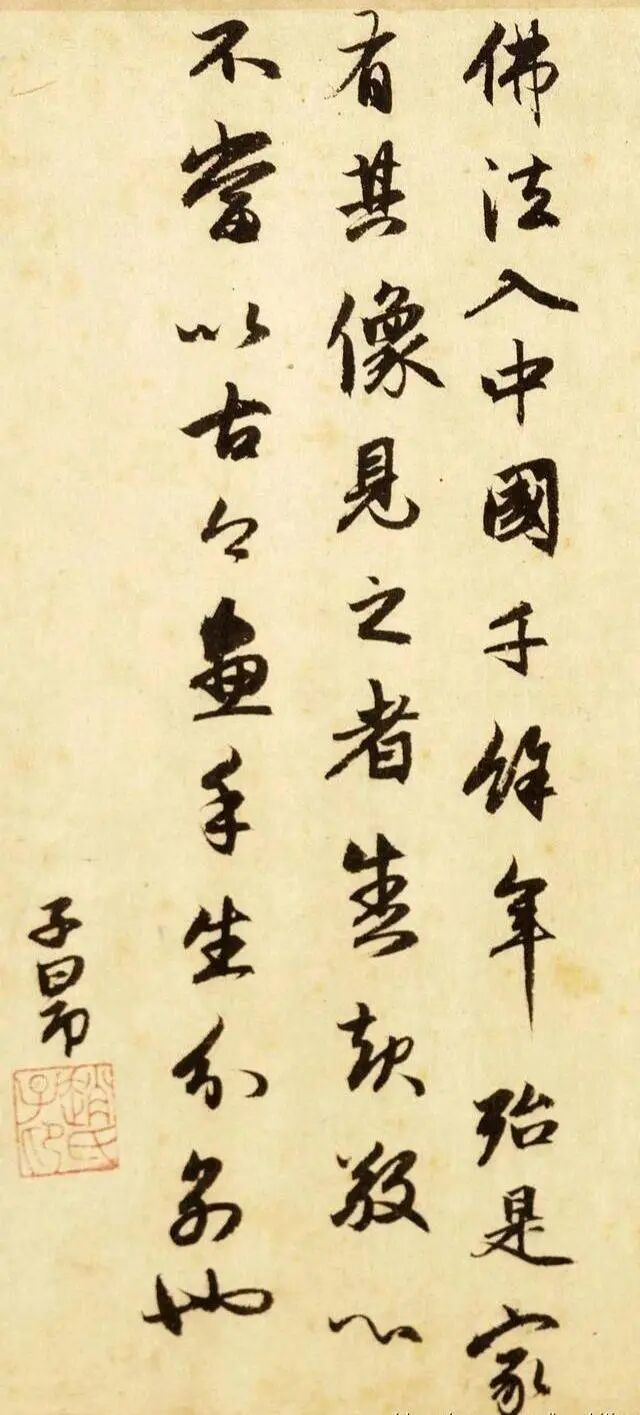 佛法入中國千餘年殆是家
有其像見之者善起敬心
不當以古今畫手生分別也
子昂
趙氏子昂